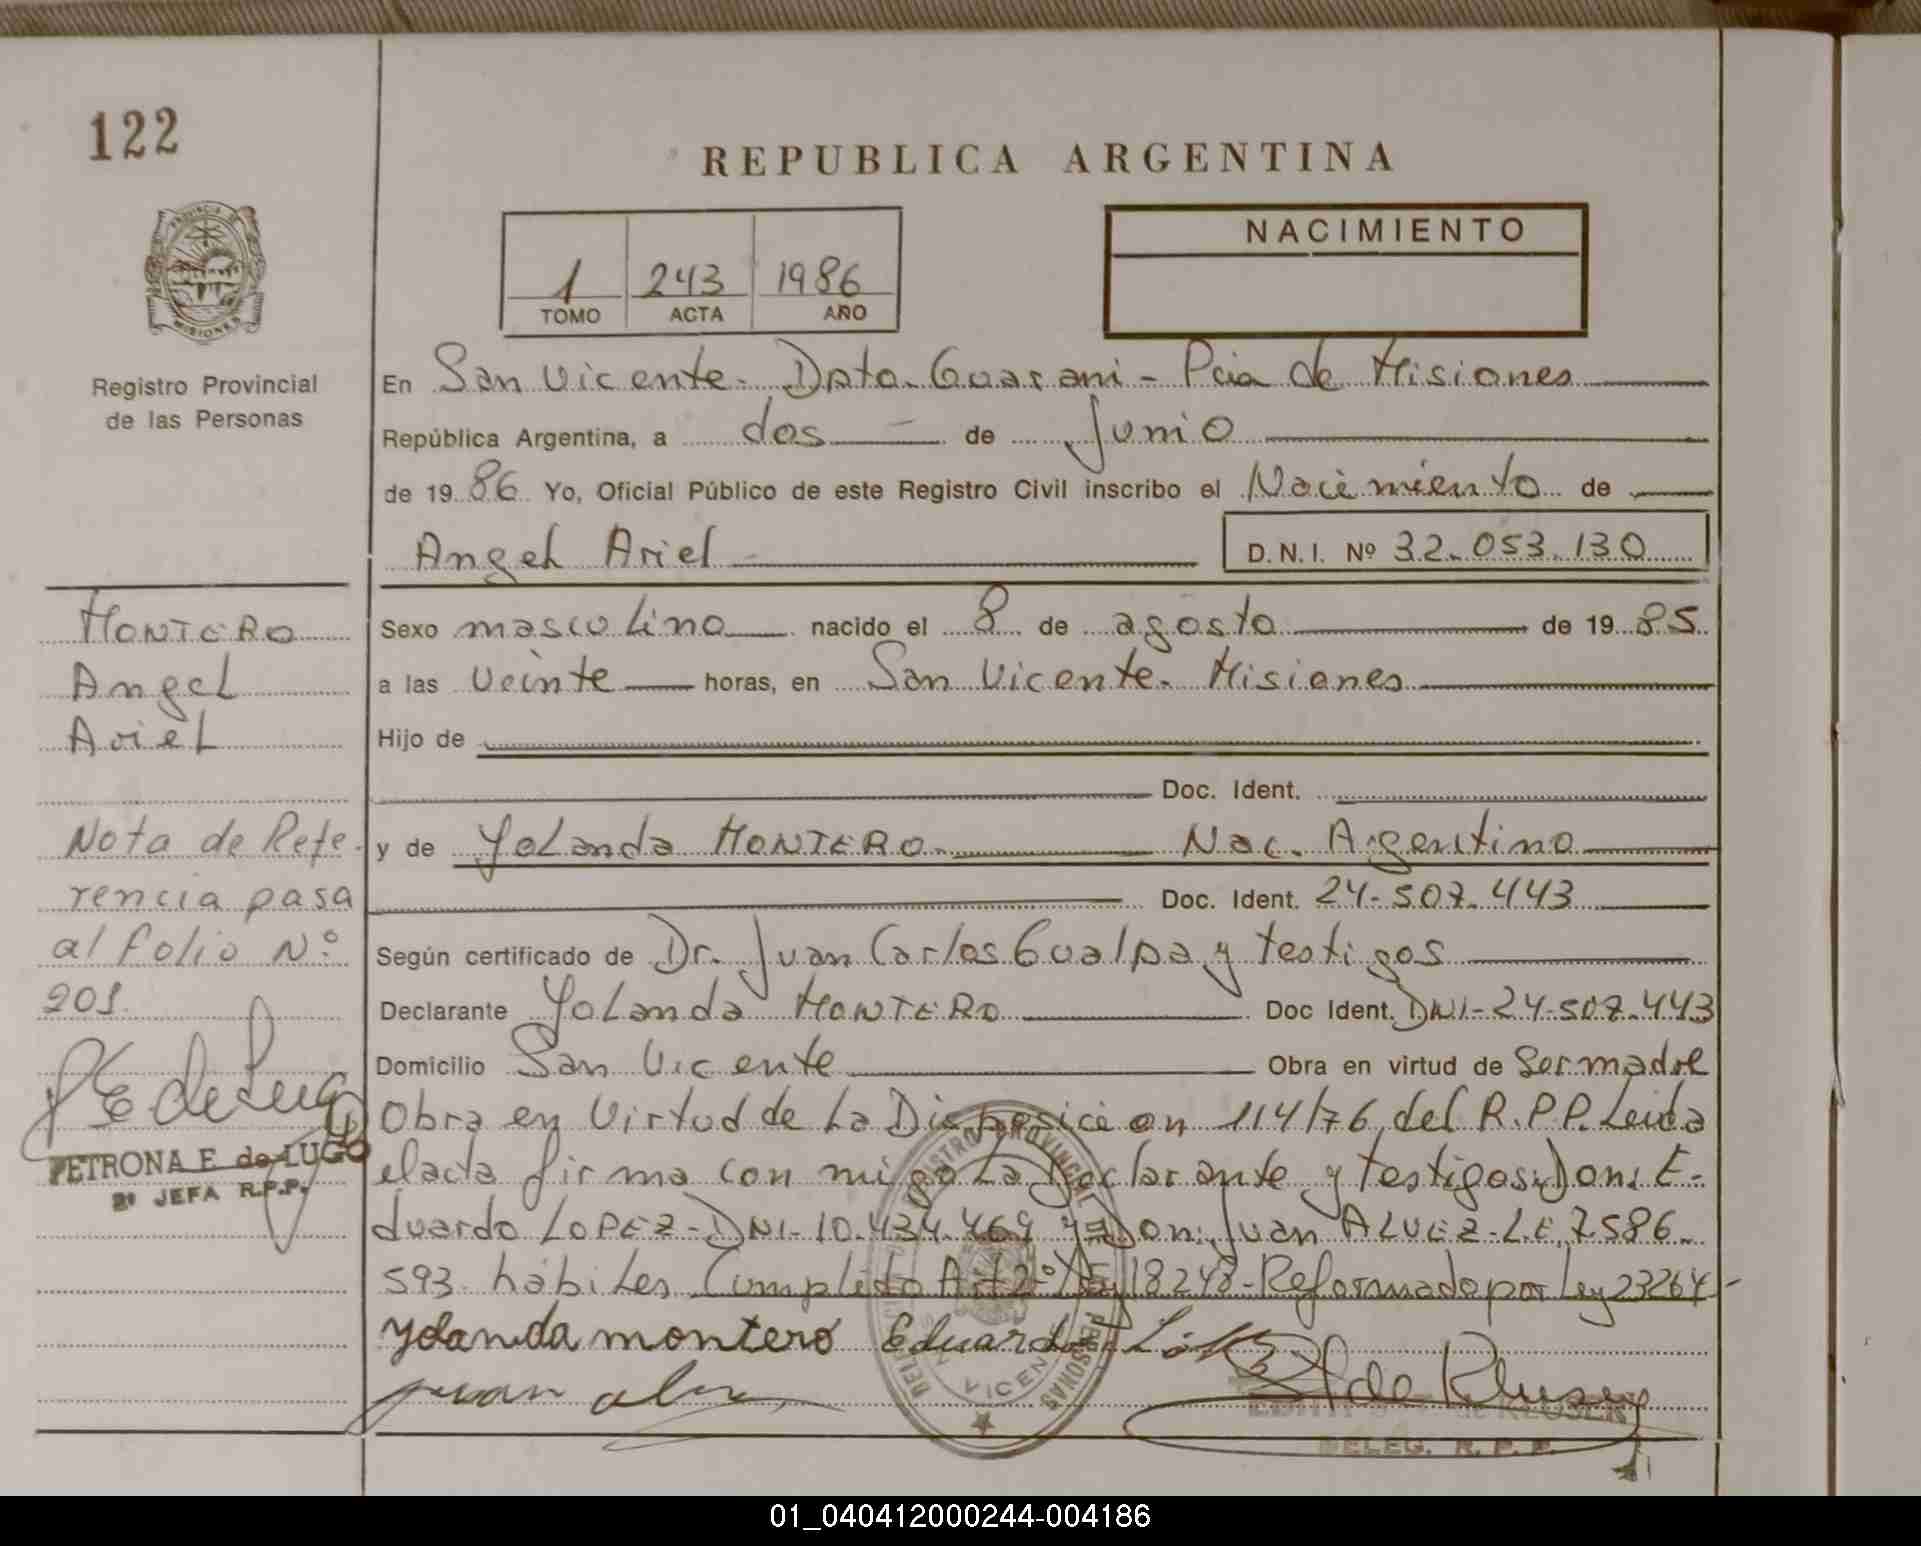 122
REPUBLICA ARGENTINA
PROVINCIA DE
MISIONES
Registro Provincial
de las Personas
1 243 1986
TOMO ACTA AÑO
NACIMIENTO
En San Vicente. Dpto. Guarani - Pcia de Misiones
República Argentina, a dos de Junio
de 1986 Yo, Oficial Público de este Registro Civil inscribo el Nacimiento de
Angel Ariel D.N.I. Nº 32.053.130
MONTERO
Angel
Ariel
Sexo masculino nacido el 8 de agosto de 1985
a las veinte horas, en San Vicente. Misiones
Hijo de
Doc. Ident.
y de Yolanda MONTERO. Nac. Argentina
Doc. Ident. 24-507.443
Según certificado de Dr. Juan Carlos Gualpa y testigos
Declarante Yolanda MONTERO Doc Ident. DNI-24-507.443
Domicilio San Vicente Obra en virtud de Ser madre
Obra en Virtud de La Disposición 114/76, del R.P.P. Leida
el acta firma con migo La Declarante y testigos Don: E-
duardo LOPEZ-DNI-10.434.469 y Don: Juan ALVEZ-L.E. 7586.
593. hábiles Cumplido Art 2º Ley 18248-Reformado por Ley 23264-
Nota de Refe-
rencia pasa
al folio Nº
201.
P E de Lugo
PETRONA E. de LUGO
2ª JEFA R.P.P.
yolanda montero Eduardo
juan
de Kluser
DELEG. R. P. P.
VICEN
01_040412000244-004186